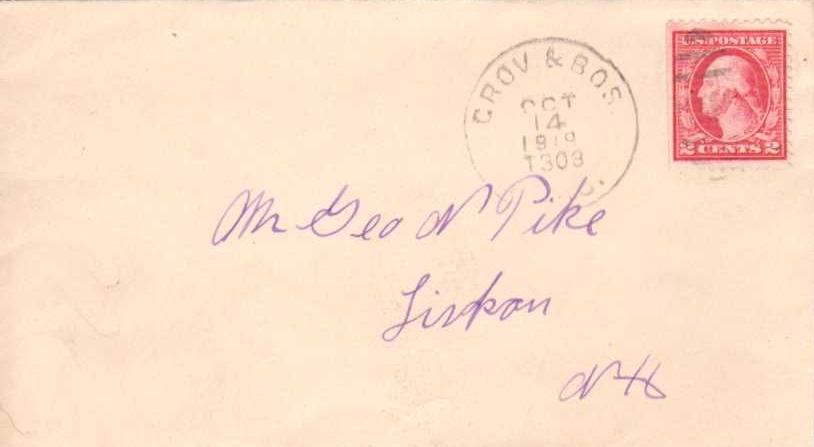 U.S. POSTAGE
2 CENTS 2
GROV & BOS.
OCT
14
1919
T309
Mr Geo N Pike
Lisbon
NH